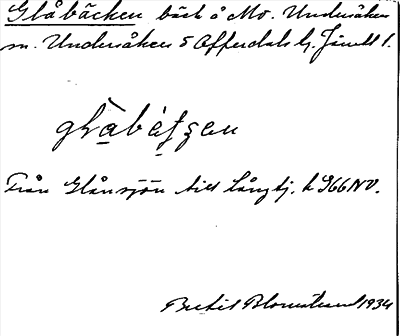 Glåbäcken bäck å Mo. Undersåker
sn. Undersåkers o Offerdals tg. Jämtl l.
glàbétʃen
Från Glånsjön till Långtj. k 966 NV.
Bertil Blomstrand 1934